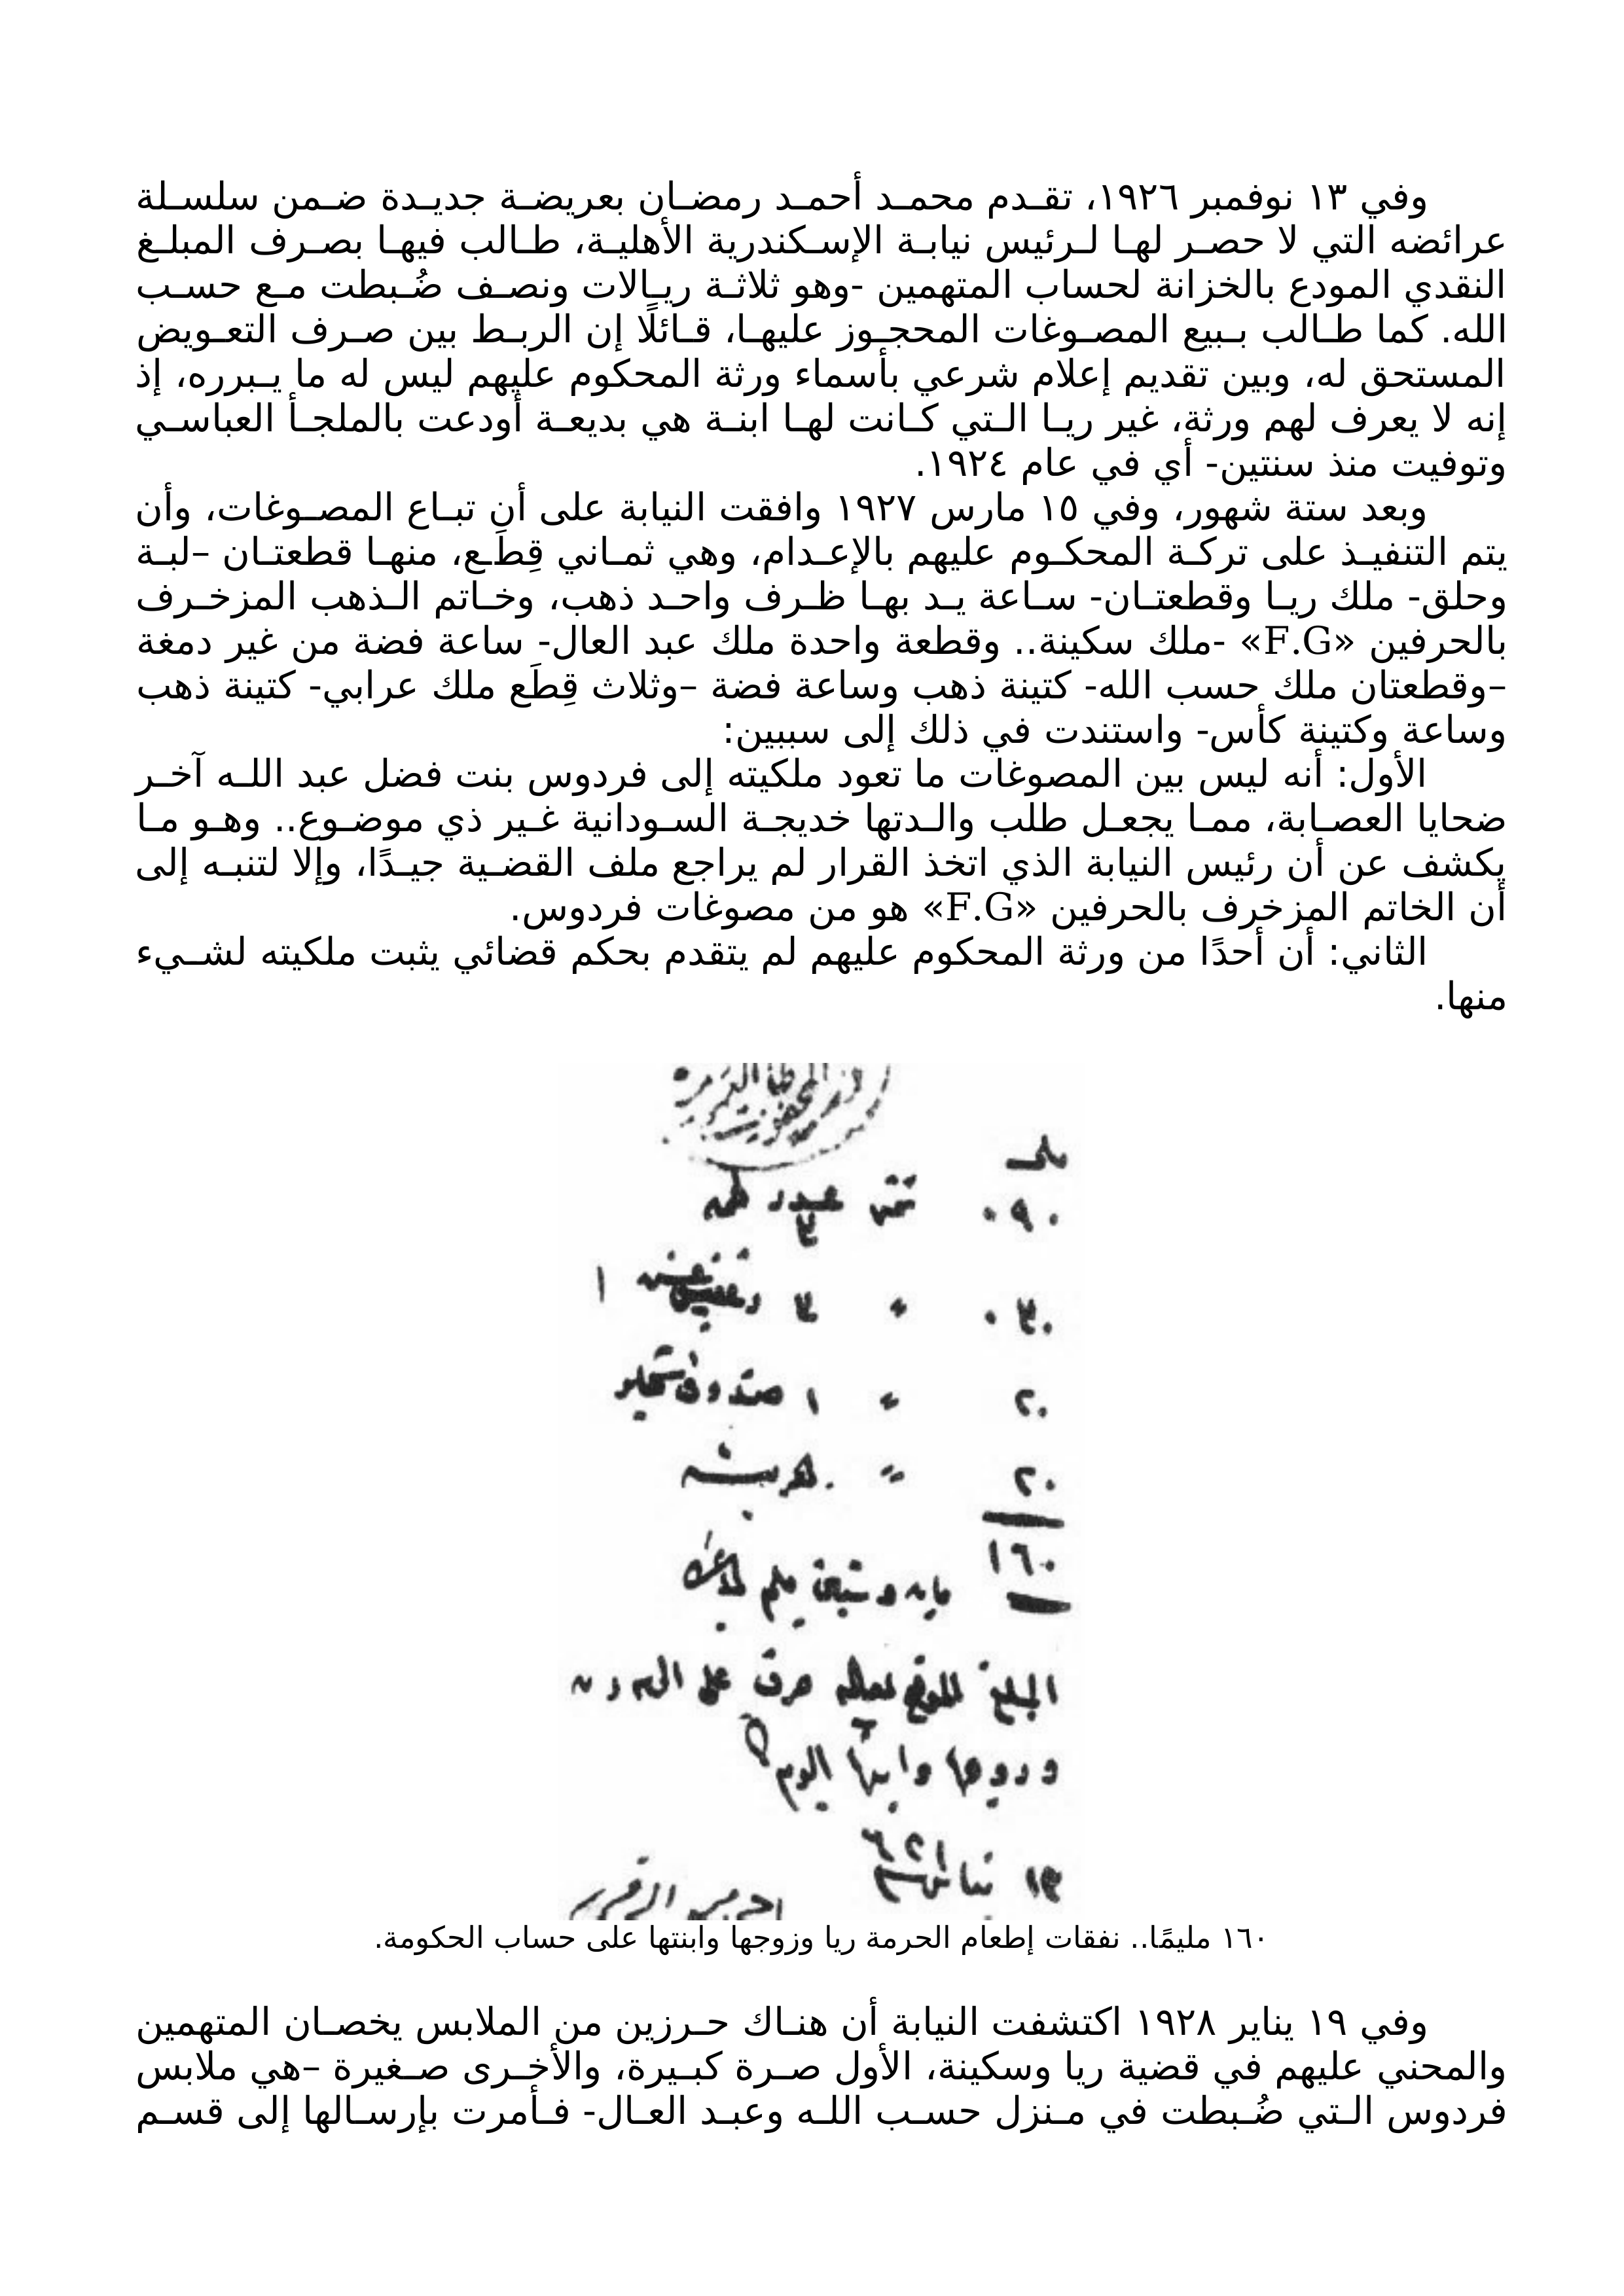 وفي ١٣ نوفمبر ١٩٢٦، تقدم محمد أحمد رمضان بعريضة جديدة ضمن سلسلة
عرائضه التي لا حصر لها لرئيس نيابة الإسكندرية الأهلية، طالب فيها بصرف المبلغ
النقدي المودع بالخزانة لحساب المتهمين -وهو ثلاثة ريالات ونصف ضُبطت مع حسب
الله. كما طالب ببيع المصوغات المحجوز عليها، قائلًا إن الربط بين صرف التعويض
المستحق له، وبين تقديم إعلام شرعي بأسماء ورثة المحكوم عليهم ليس له ما يبرره، إذ
إنه لا يعرف لهم ورثة، غير ريا التي كانت لها ابنة هي بديعة أودعت بالملجأ العباسي
وتوفيت منذ سنتين- أي في عام ١٩٢٤.
وبعد ستة شهور، وفي ١٥ مارس ١٩٢٧ وافقت النيابة على أن تباع المصوغات، وأن
يتم التنفيذ على تركة المحكوم عليهم بالإعدام، وهي ثماني قِطَع، منها قطعتان –لبة
وحلق- ملك ريا وقطعتان- ساعة يد بها ظرف واحد ذهب، وخاتم الذهب المزخرف
بالحرفين «F.G» -ملك سكينة.. وقطعة واحدة ملك عبد العال- ساعة فضة من غير دمغة
–وقطعتان ملك حسب الله- كتينة ذهب وساعة فضة –وثلاث قِطَع ملك عرابي- كتينة ذهب
وساعة وكتينة كأس- واستندت في ذلك إلى سببين:
الأول: أنه ليس بين المصوغات ما تعود ملكيته إلى فردوس بنت فضل عبد الله آخر
ضحايا العصابة، مما يجعل طلب والدتها خديجة السودانية غير ذي موضوع.. وهو ما
يكشف عن أن رئيس النيابة الذي اتخذ القرار لم يراجع ملف القضية جيدًا، وإلا لتنبه إلى
أن الخاتم المزخرف بالحرفين «F.G» هو من مصوغات فردوس.
الثاني: أن أحدًا من ورثة المحكوم عليهم لم يتقدم بحكم قضائي يثبت ملكيته لشيء
منها.
٠٩٠ ثمن عدد ٣
٠٣٠ " ٣
٢٠ " ١ صندوق
٢٠ "
١٦٠ مايه وستين مليم
المبلغ صرف على
وزوجها وابنتها اليوم
١٦٠ مليمًا.. نفقات إطعام الحرمة ريا وزوجها وابنتها على حساب الحكومة.
وفي ١٩ يناير ١٩٢٨ اكتشفت النيابة أن هناك حرزين من الملابس يخصان المتهمين
والمحني عليهم في قضية ريا وسكينة، الأول صرة كبيرة، والأخرى صغيرة –هي ملابس
فردوس التي ضُبطت في منزل حسب الله وعبد العال- فأمرت بإرسالها إلى قسم